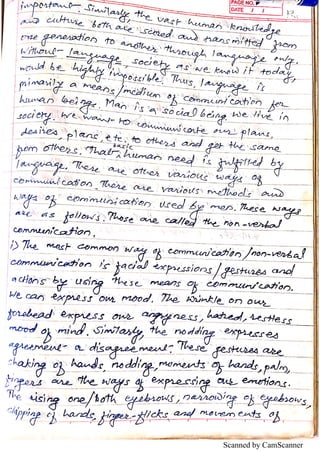 PAGE NO.
DATE
important. Similarly, the vast human knowledge
and culture both are stored and transmitted from
one generation to another through language only.
Without language society as we know it today,
would be highly impossible. Thus, language is
primarily a means/medium of communication for
human beings. Man is a social being we live in
society. We want to communicate our plans,
desires, plans, etc. to others and get the same
from others. That basic human need is fulfilled by
language. There are other various ways of
communication There are various methods and
ways of communication used by men. These ways
are as follows. Those are called the non-verbal
communication.
i) The most common way of communication/non-verbal
communication is facial expressions/gestures and
actions by using these means of communication.
We can express our mood. The wrinkle on our
forehead express our angryness, hatred, restless
mood of mind. Similarly, the nodding expresses
agreement a disagreement. These gestures are
shaking of hands, nodding, moments of hands, palm,
fingers are the ways of expressing our emotions.
The rising one/both eyebrows, narrowing of eyebrows,
clipping of hands, finger-flicks and movements of
Scanned by CamScanner